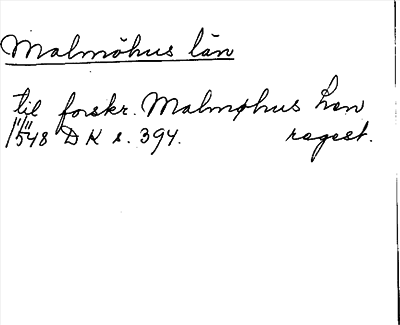 Malmöhus län
til forskr. Malmøhus han
1548 DK s. 394. ragest.